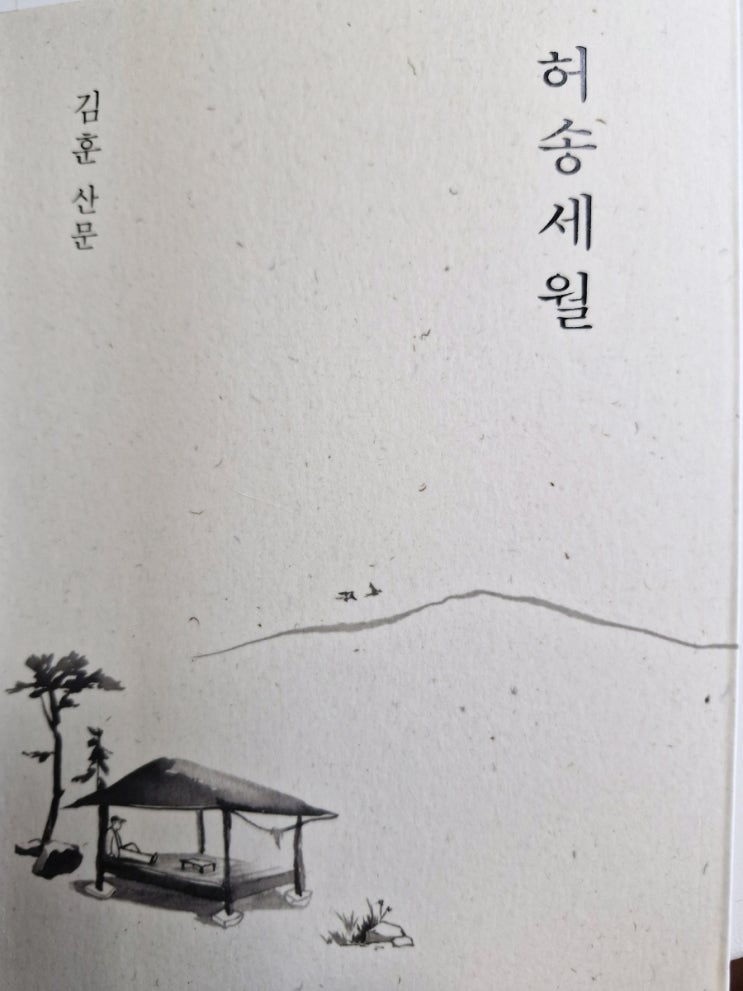 허송세월
김훈 산문